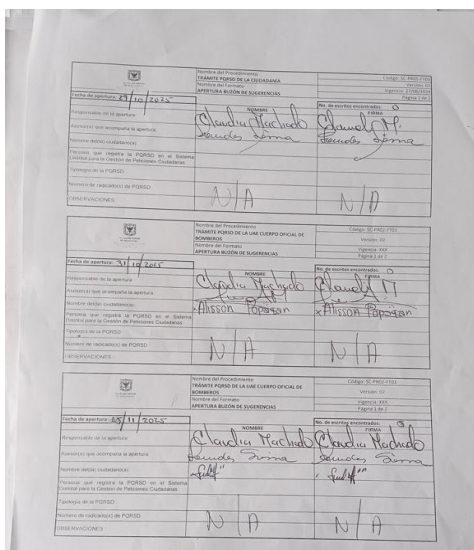 Nombre del Procedimiento
TRÁMITE PQRSD DE LA CIUDADANIA
Nombre del Formato
APERTURA BUZÓN DE SUGERENCIAS
Código: SC-PR02-FT03
Página 1 de
Fecha de apertura: 29/10/2025
No. de escritos encontrados: 0
NOMBRE
FIRMA
Responsable de la apertura
Claudia Machado
Claudia M.
Asesor(a) que acompaña la apertura
Nombre del(os) ciudadano(s):
Persona que registra la PQRSD en el Sistema
Distrital para la Gestión de Peticiones Ciudadanas
Tipología de la PQRSD
Número de radicado(s) de PQRSD
N/A
N/A
OBSERVACIONES
Nombre del Procedimiento
TRÁMITE PQRSD DE LA UAE CUERPO OFICIAL DE
BOMBEROS
Nombre del Formato
APERTURA BUZÓN DE SUGERENCIAS
Código: SC-PR02-FT03
Versión: 02
Vigencia: XXX
Página 1 de 2
Fecha de apertura: 31/10/2025
No. de escritos encontrados: 0
NOMBRE
FIRMA
Responsable de la apertura
Claudia Machado
Claudia M
Asesor(a) que acompaña la apertura
Nombre del(os) ciudadano(s):
Alisson
Alisson
Persona que registra la PQRSD en el Sistema
Distrital para la Gestión de Peticiones Ciudadanas
Tipología de la PQRSD
Número de radicado(s) de PQRSD
N/A
N/A
OBSERVACIONES
Nombre del Procedimiento
TRÁMITE PQRSD DE LA UAE CUERPO OFICIAL DE
BOMBEROS
Nombre del Formato
APERTURA BUZÓN DE SUGERENCIAS
Código: SC-PR02-FT03
Versión: 02
Vigencia: XXX
Página 1 de 2
Fecha de apertura: /11/2025
No. de escritos encontrados:
NOMBRE
FIRMA
Responsable de la apertura
Claudia Machado
Claudia Machado
Asesor(a) que acompaña la apertura
Nombre del(os) ciudadano(s):
Persona que registra la PQRSD en el Sistema
Distrital para la Gestión de Peticiones Ciudadanas
Tipología de la PQRSD
Número de radicado(s) de PQRSD
N/A
N/A
OBSERVACIONES